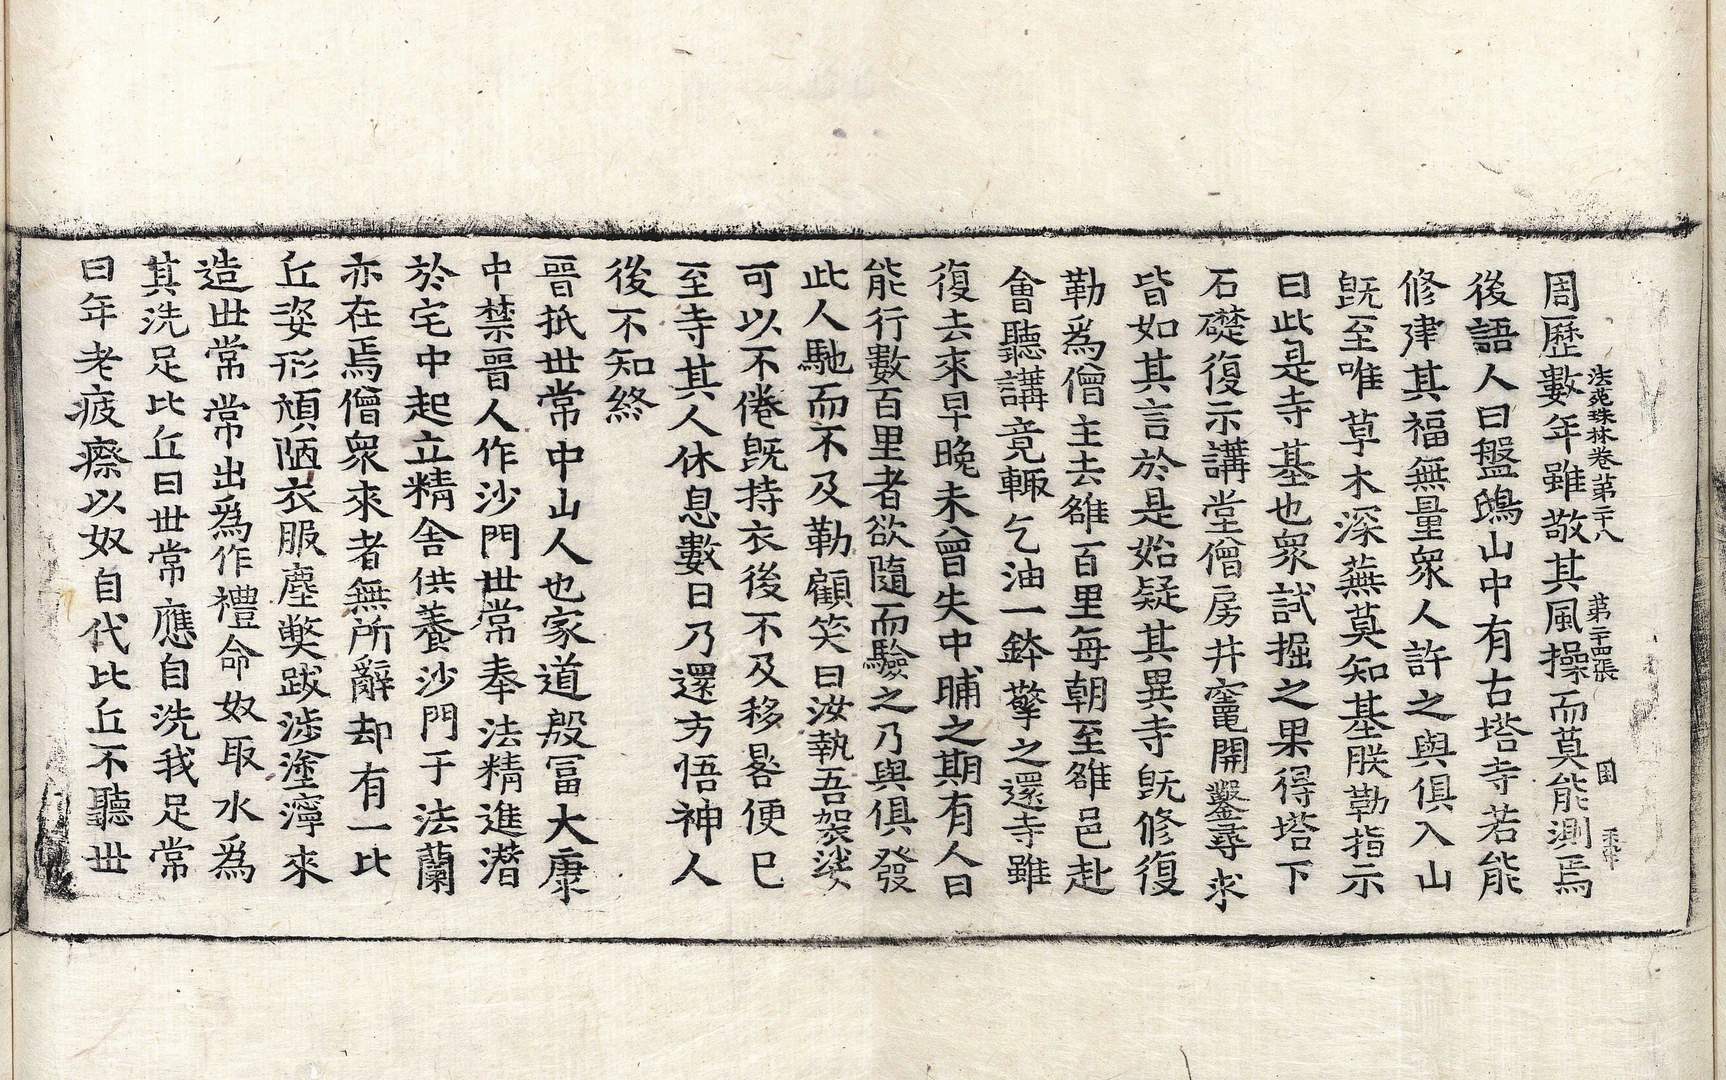 法苑珠林卷第二十八　第二十四張　圖
周歷數年雖敬其風操而莫能測焉
後語人曰盤鵄山中有古塔寺若能
修建其福無量衆人許之與俱入山
旣至唯草木深蕪莫知基朕勒指示
曰此是寺基也衆試掘之果得塔下
石礎復示講堂僧房井竈開鑿尋求
皆如其言於是始疑其異寺旣修復
勒爲僧主去雒一百里每朝至雒邑赴
會聽講竟輙乞油一鉢擎之還寺雖
復去來早晚未曾失中晡之期有人曰
能行數百里者欲隨而驗之乃與俱發
此人馳而不及勒顧笑曰汝執吾袈裟
可以不倦旣持衣後不及移晷便已
至寺其人休息數日乃還方悟神人
後不知終
晉抵世常中山人也家道殷冨大康
中禁晉人作沙門世常奉法精進潛
於宅中起立精舍供養沙門于法蘭
亦在焉僧衆來者無所辭却有一比
丘姿形頑陋衣服塵獘跋涉塗濘來
造世常常出爲作禮命奴取水爲
其洗足比丘曰世常應自洗我足常
曰年老疲瘵以奴自代比丘不聽世